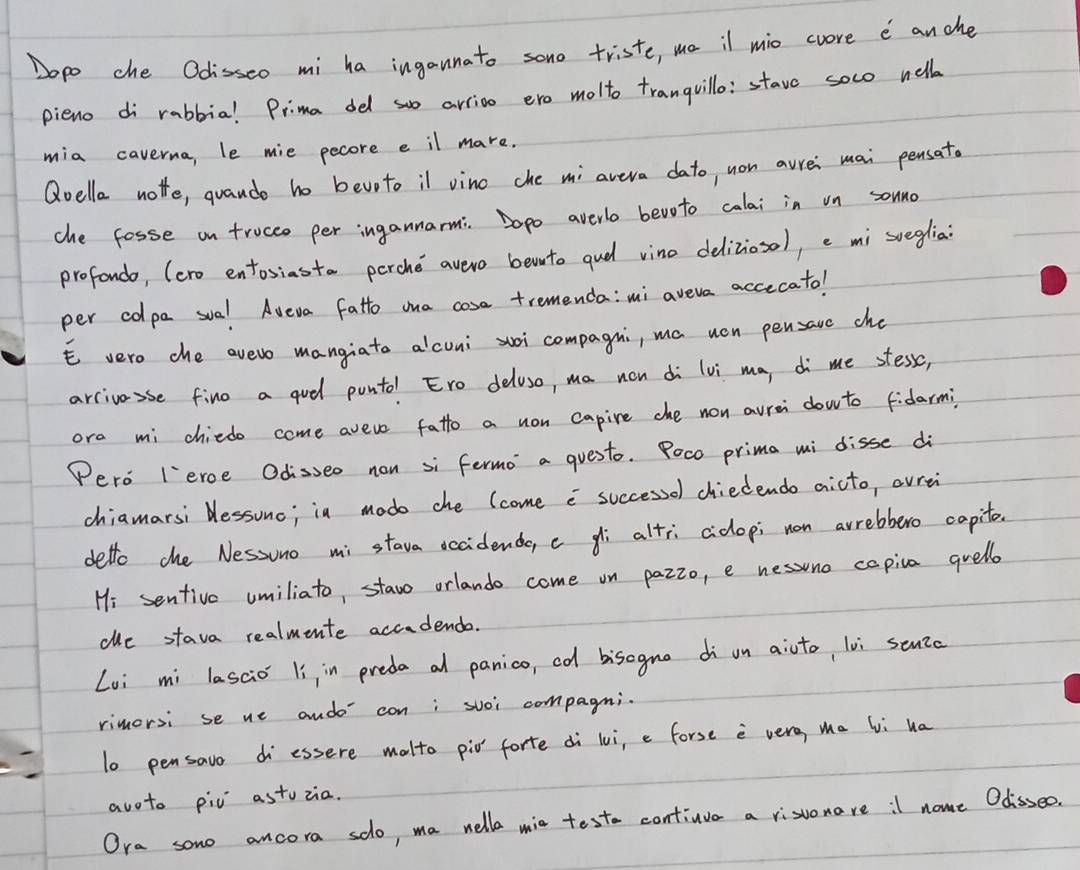 Dopo che Odisseo mi ha ingannato sono triste, ma il mio cuore é anche
pieno di rabbia! Prima del suo arrivo ero molto tranquillo: stavo solo nella
mia caverna, le mie pecore e il mare.
Quella notte, quando ho bevuto il vino che mi aveva dato, non avrei mai pensato
che fosse un trucco per ingannarmi. Dopo averlo bevuto calai in un sonno
profondo, (ero entusiasta perché avevo bevuto quel vino delizioso), e mi svegliai
per colpa sua! Aveva fatto una cosa tremenda: mi aveva accecato!
É vero che avevo mangiato alcuni suoi compagni, ma non pensavo che
arrivasse fino a quel punto! Ero deluso, ma non di lui ma, di me stesso,
ora mi chiedo come avevo fatto a non capire che non avrei dovuto fidarmi.
Peró l'eroe Odisseo non si fermó a questo. Poco prima mi disse di
chiamarsi Nessuno; in modo che (come é successo) chiedendo aiuto, avrei
detto che Nessuno mi stava uccidendo, e gli altri ciclopi non avrebbero capito.
Mi sentivo umiliato, stavo urlando come un pazzo, e nessuno capiva quello
che stava realmente accadendo.
Lui mi lasció lì, in preda al panico, col bisogno di un aiuto, lui senza
rimorsi se ne andó con i suoi compagni.
Io pensavo di essere molto piú forte di lui, e forse è vero, ma lui ha
avuto piú astuzia.
Ora sono ancora solo, ma nella mia testa continua a risuonare il nome Odisseo.